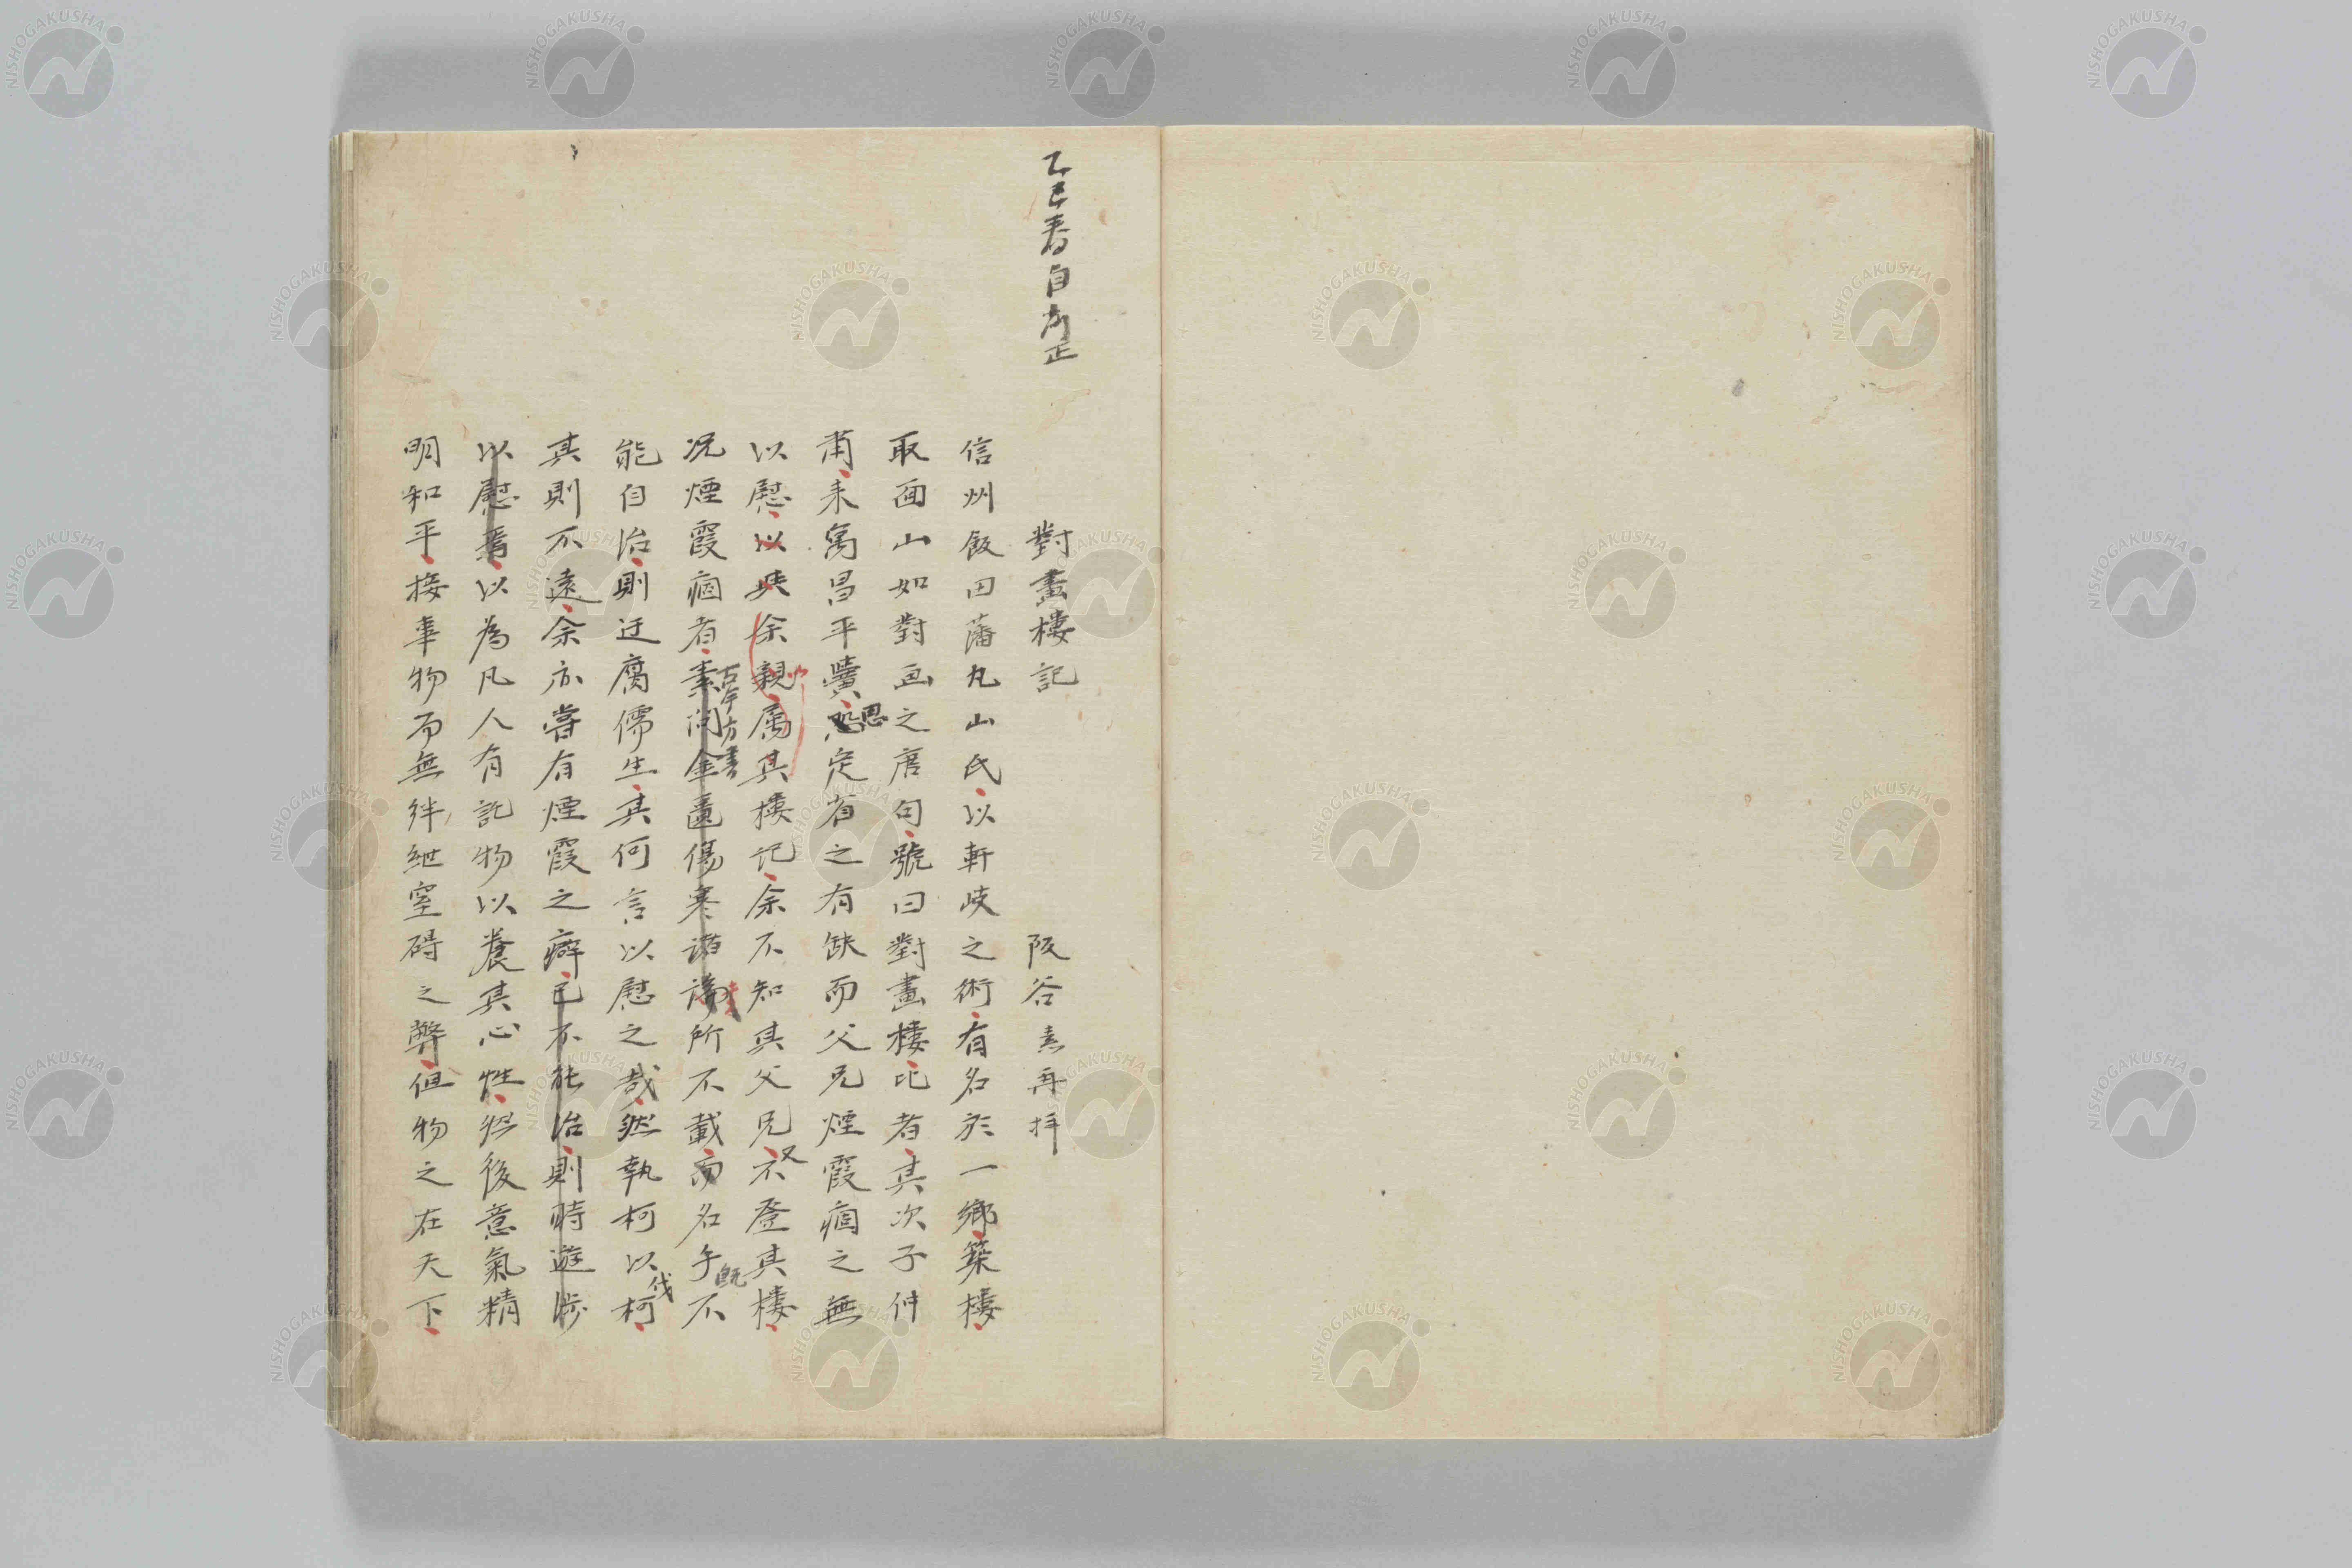 乙巳春自為正
對畫樓記 阪谷素再拝
信州飯田藩丸山氏以軒岐之術有名於一鄉築樓
取面山如對画之唐句號曰對畫樓比者其次子仲
甫来寓昌平黌思定省之有缺而父兄煙霞痼之無
以慰以與余親属其樓記余不知其父兄又不登其樓
况煙霞痼者素問金匱傷寒諸論所不載而名午不
古今方書
既
能自治則迂腐儒生其何言以慰之哉然執柯以伐柯
其則不遠余亦嘗有煙霞之癖已不能治則時遊涉
以慰焉以為凡人有託物以養其心性然後意氣精
明和平接事物而無絆紲窒碍之弊但物之在天下
NISHOGAKUSHA